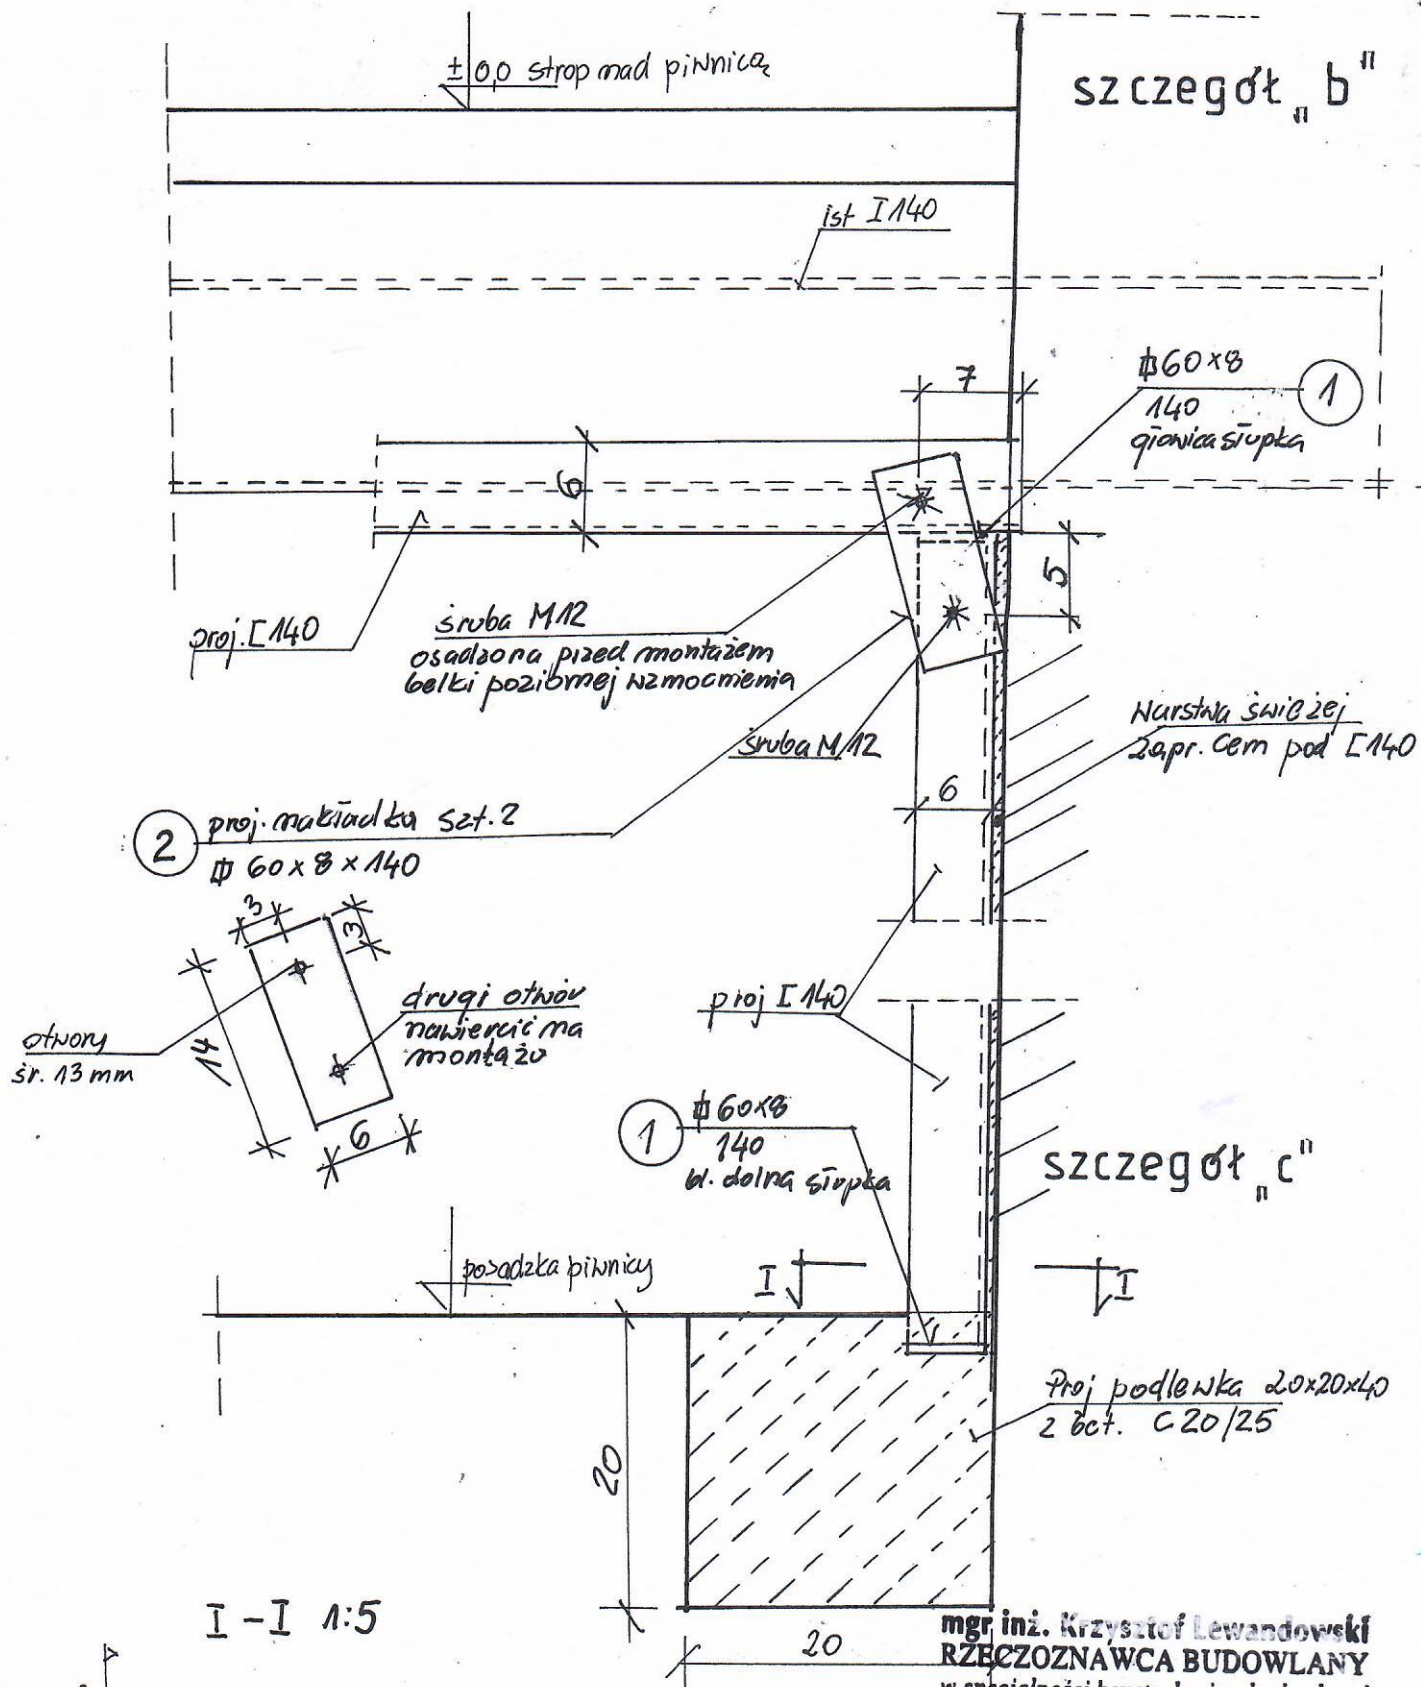 ± 0,0 strop nad piwnicą
szczegół „b"
ist I 140
7
⌀60x8
140
głowica słupka
1
6
5
proj. [ 140
śruba M12
osadzona przed montażem
belki poziomej wzmocnienia
śruba M12
Warstwa świeżej
zapr. cem pod [ 140
6
2
proj. nakładka szt. 2
60 x 8 x 140
3
3
14
6
otwory
śr. 13 mm
drugi otwór
nawiercić na
montażu
proj [ 140
1
60x8
140
bl. dolna słupka
szczegół „c"
posadzka piwnicy
I
I
Proj podlewka 20x20x40
z bet. C 20/25
20
20
I - I 1:5
mgr inż. Krzysztof Lewandowski
RZECZOZNAWCA BUDOWLANY